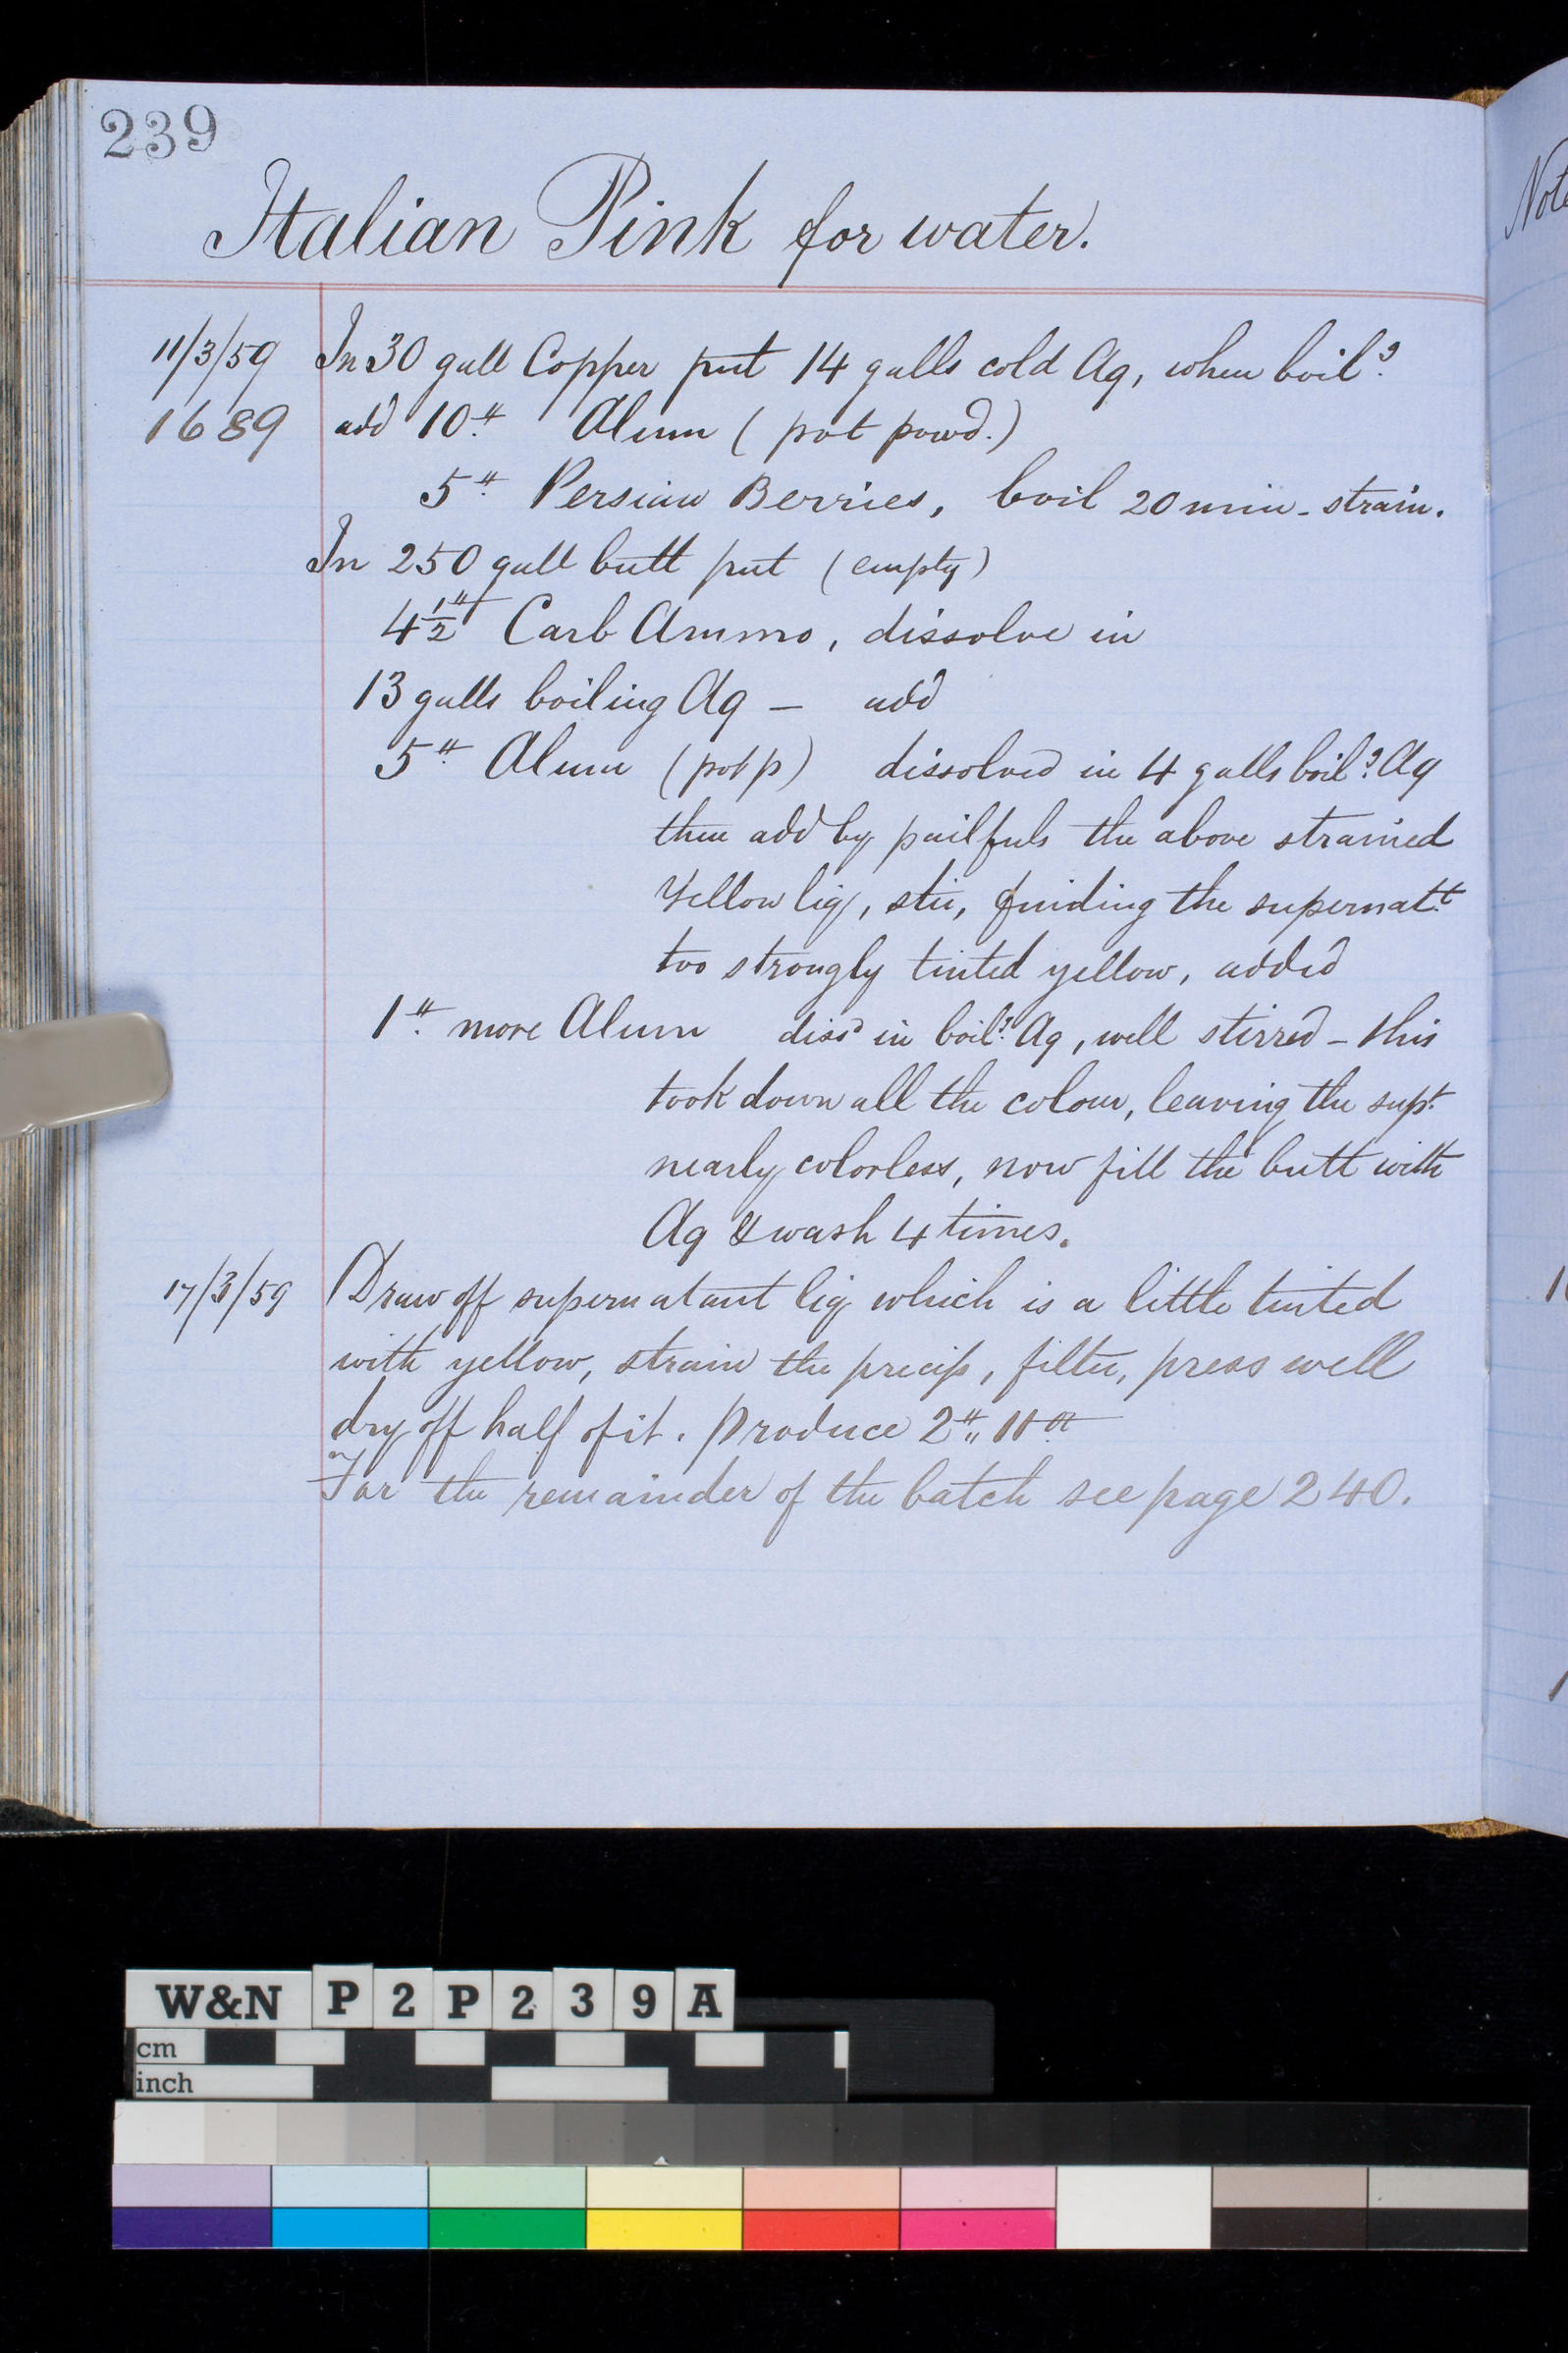 239
Italian Pink for water.
11/3/59 In 30 gall Copper put 14 galls cold Aq, when boilg
1689 add 10 lb Alum (pot powd.)
5 lb Persian Berries, boil 20 min - strain.
In 250 gall butt put (empty)
4 1/2 lb Carb Ammo, dissolve in
13 galls boiling Aq — add
5 lb Alum (pot p) dissolved in 4 galls boilg Aq
then add by pailfuls the above strained
Yellow liq, stir, finding the supernatt
too strongly tinted yellow, added
1 lb more Alum dissd in boilg Aq, well stirred - this
took down all the colour, leaving the supt
nearly colorless, now fill the butt with
Aq & wash 4 times.
17/3/59 Draw off supernatant liq which is a little tinted
with yellow, strain the precip, filter, press well
dry off half of it. Produce 2 lb,, 11 oz
For the remainder of the batch see page 240.
Note
W&N P2P239A
cm
inch